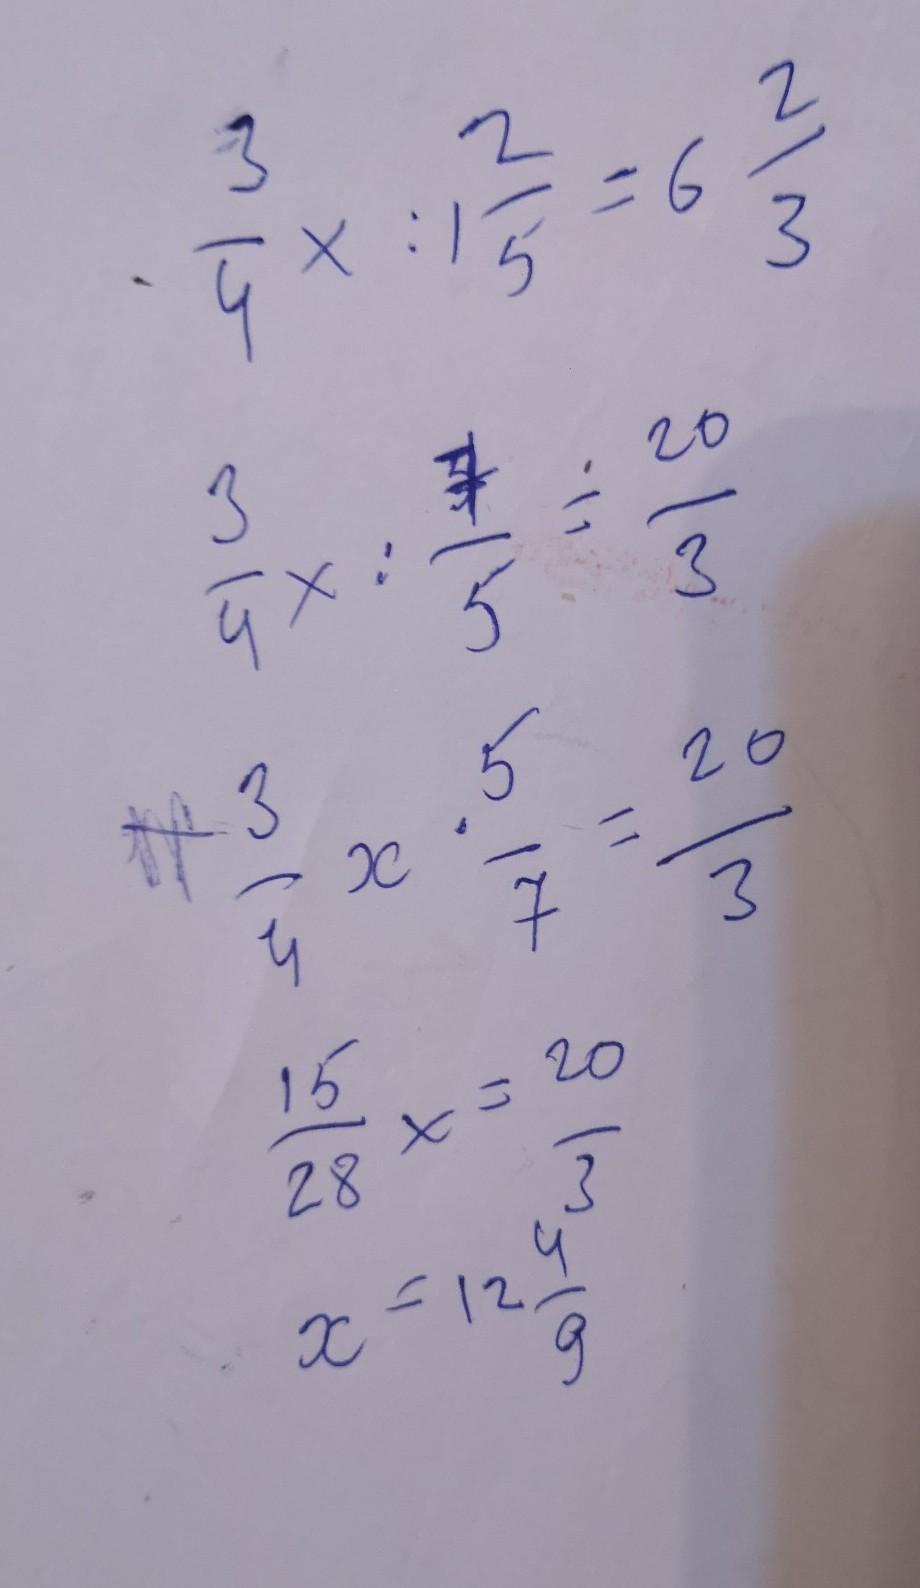 3/4 x : 1 2/5 = 6 2/3
3/4 x : 7/5 = 20/3
3/4 x · 5/7 = 20/3
15/28 x = 20/3
x = 12 4/9